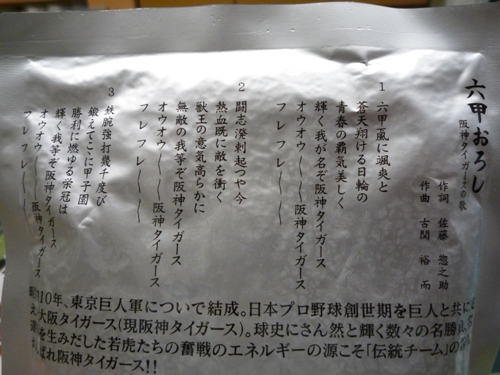 六甲おろし
阪神タイガースの歌
作詞 佐藤 惣之助
作曲 古関 裕而
1 六甲颪に颯爽と
蒼天翔ける日輪の
青春の覇気美しく
輝く我が名ぞ阪神タイガース
オウオウ――阪神タイガース
フレフレ――
2 闘志溌剌起つや今
熱血既に敵を衝く
獣王の意気高らかに
無敵の我等ぞ阪神タイガース
オウオウ――阪神タイガース
フレフレ――
3 鉄腕強打幾千度び
鍛えてここに甲子園
勝利に燃ゆる栄冠は
輝く我等ぞ阪神タイガース
オウオウ――阪神タイガース
フレフレ――
10年、東京巨人軍について結成。日本プロ野球創世期を巨人と共に
え大阪タイガース(現阪神タイガース)。球史にさん然と輝く数々の名勝
を生みだした若虎たちの奮戦のエネルギーの源こそ「伝統チーム」の
ばれ阪神タイガース!!